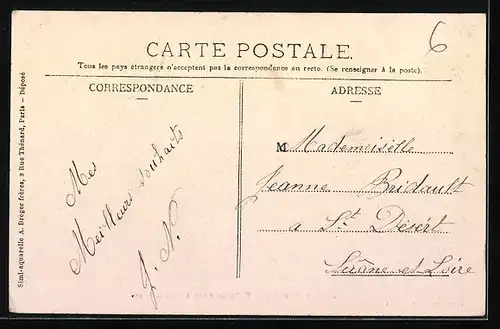 6
CARTE POSTALE.
Tous les pays étrangers n'acceptent pas la correspondance au recto. (Se renseigner à la poste).
CORRESPONDANCE
Mes
Meilleurs Souhaits
J. N.
ADRESSE
M Mademoiselle
Jeanne Bridault
a St Désert
Saône et Loire
Simi-aquarelle A. Breger frères, 9 Rue Thénard, Paris — Déposé